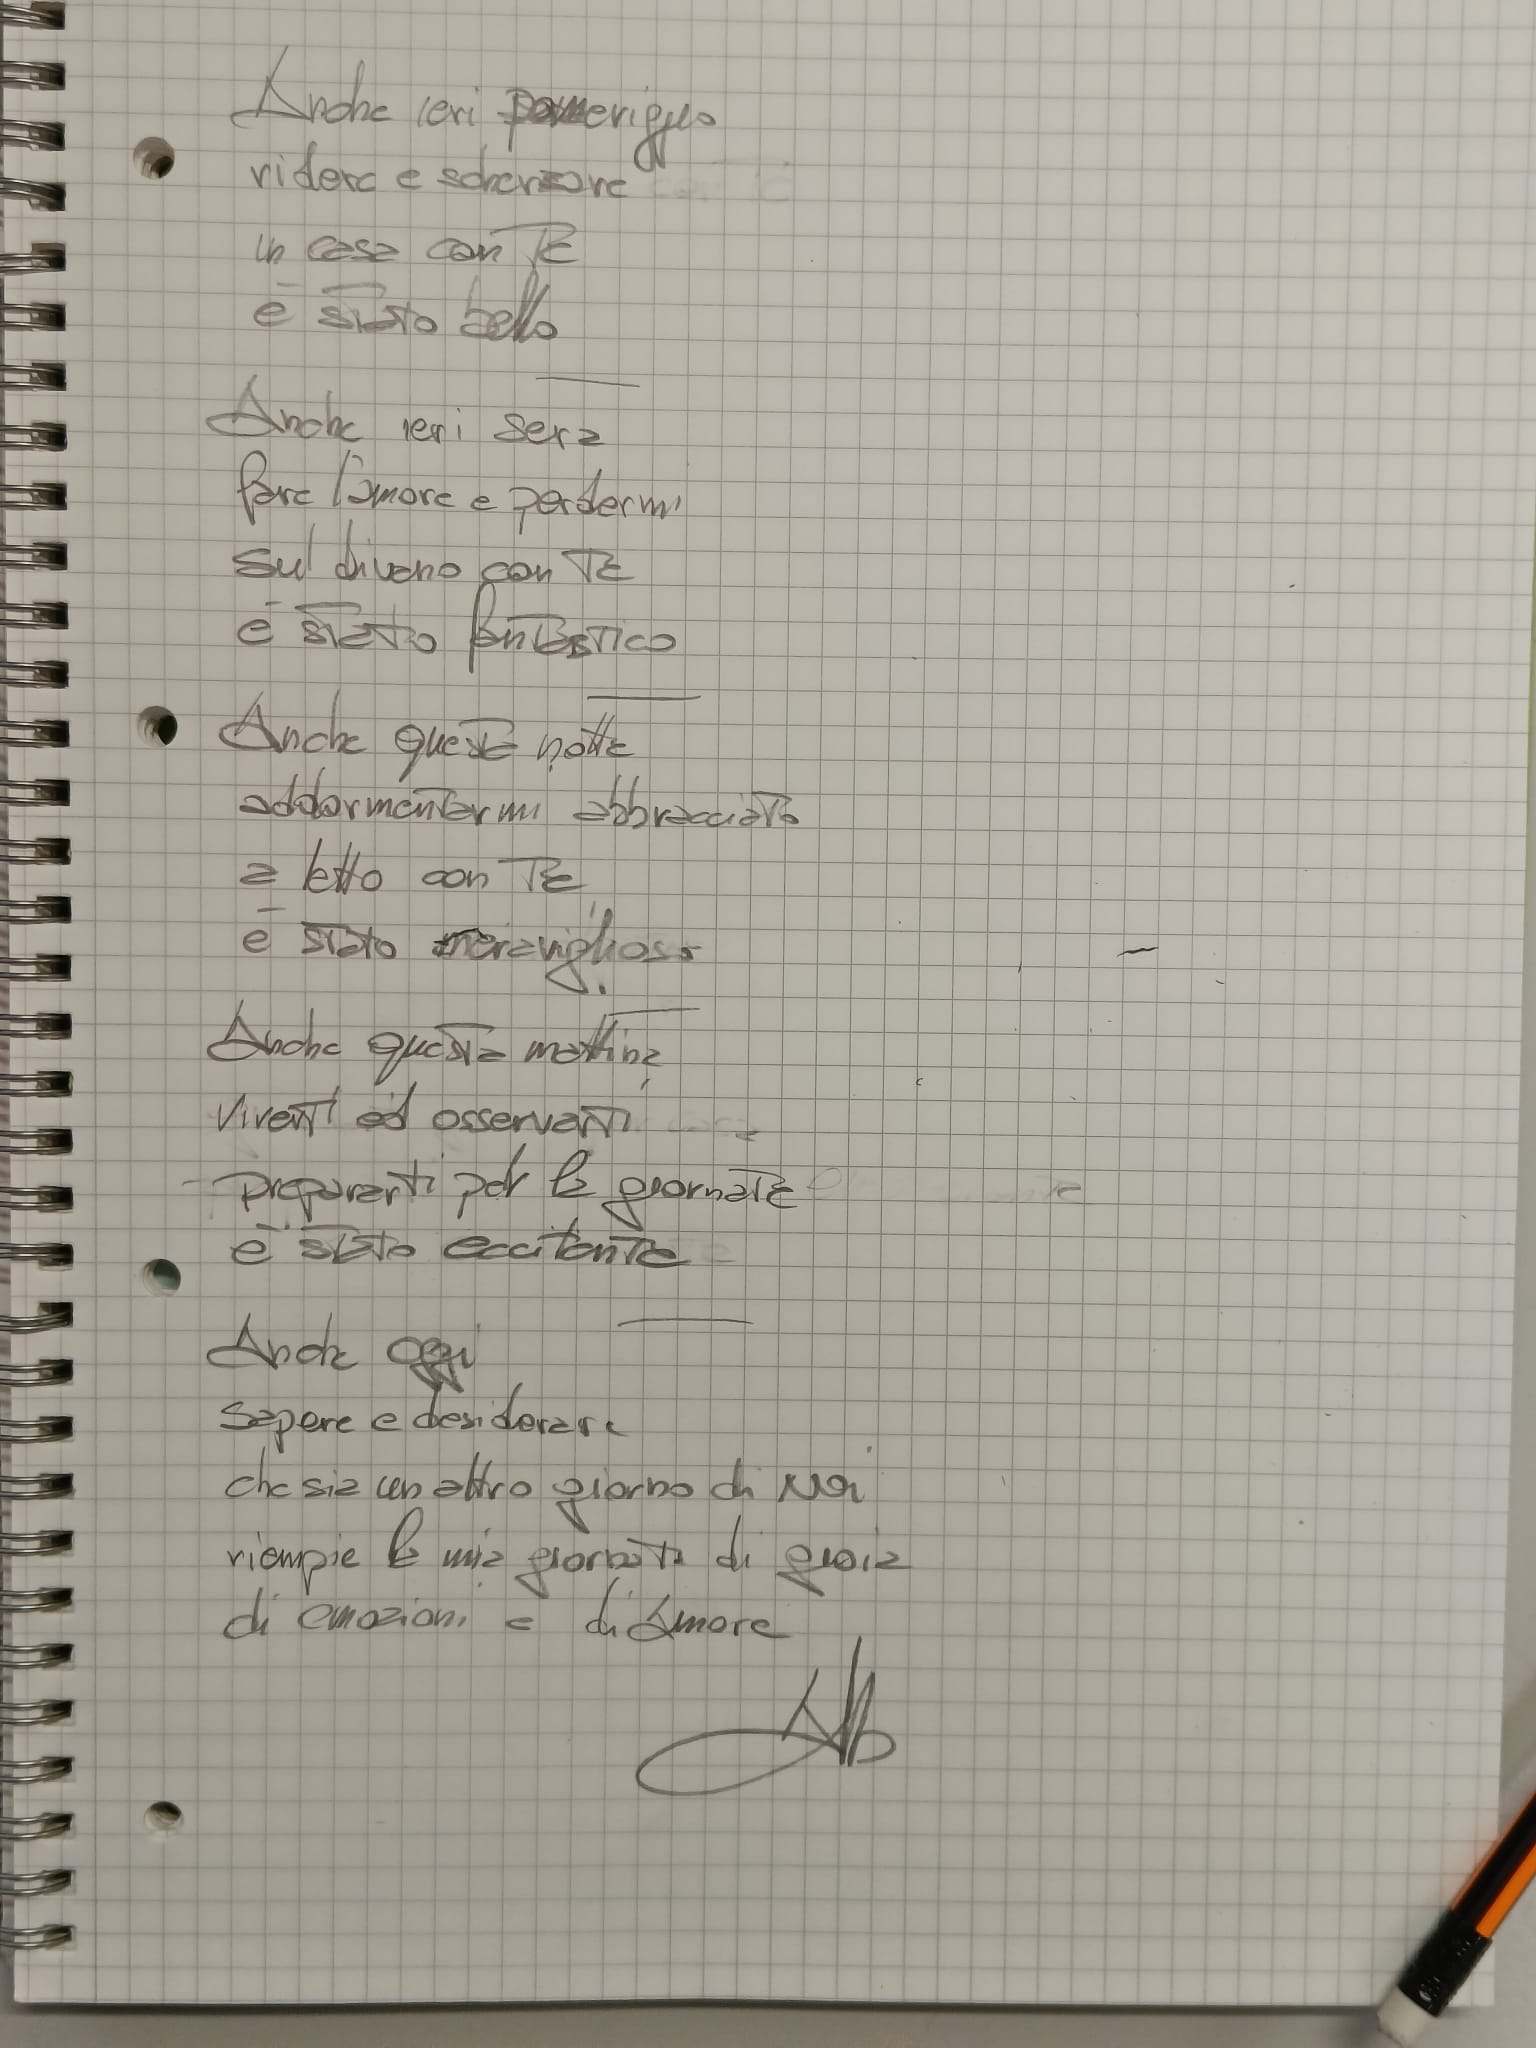 Anche ieri pomeriggio
ridere e scherzare
in casa con TE
è stato bello
Anche ieri sera
fare l'amore e perdermi
sul divano con TE
è stato fantastico
Anche questa notte
addormentarmi abbracciato
a letto con TE
è stato meraviglioso
Anche questa mattina
viverti ed osservarti
prepararti per la giornata
è stato eccitante
Anche oggi
sapere e desiderare
che sia un altro giorno di Noi
riempie la mia giornata di gioia
di emozioni e di Amore